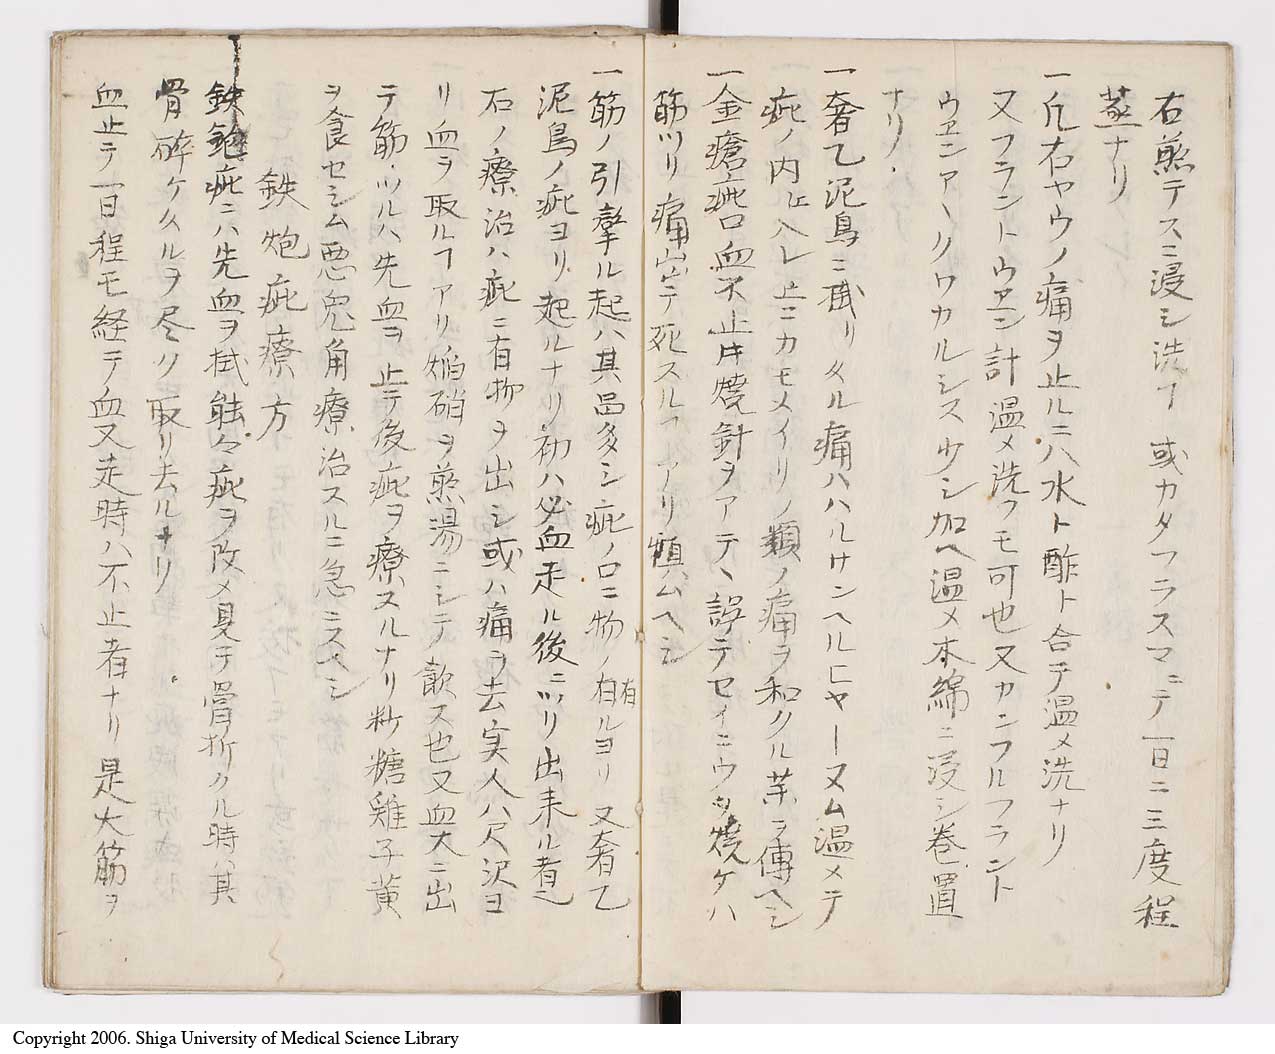 右煎テスニ浸シ洗フ 或カタフラスマニテ一日ニ三度程
蒸ナリ
一凡右ヤウノ痛ヲ止ルニハ水ト酢ト合テ温メ洗ナリ
又フラントウヱン計温メ洗フモ可也又カンフルフラント
ウヱンアリワカルシスウサシ加ヘ温メ本綿ニ浸シ巻置
ナリ
一奢乙泥鳥ニ掛リタル痛ハハルサンヘルヒヤーヌム温メテ
疵ノ内ヒ入レ上ニカモメイリノ類ノ痛ヲ和クル薬ヲ傳ヘシ
一金瘡疵口血不止片焼針ヲアテ、誤テセイニウヲ焼ケハ
筋ツリ痛出テ死スルヿアリ慎ムヘシ
一筋ノ引攣ル起ハ其品多シ疵ノ口ニ物ノ有ルヨリ 又奢乙
泥鳥ノ疵ヨリ起ルナリ初ハ必血走ル後ニツリ出来ル者也
右ノ療治ハ疵ニ有物ヲ出シ或ハ痛ヲ去実人ハ尺沢ヨ
リ血ヲ取ルヿアリ焔硝ヲ煎湯ニシテ飲ス也又血大ニ出
テ筋ツルハ先血ヲ止テ後疵ヲ療スルナリ粆糖雞子黄
ヲ食セシム悪鬼角療治スルニ急ニスヘシ
鉄炮疵療方
鉄砲疵ニハ先血ヲ拭能々疵ヲ改メ見テ骨折タル時ハ其
骨砕ケタルヲ尽ク取リ去ルナリ
血止テ一日程モ経テ血又走時ハ不止者ナリ 是大筋ヲ
Copyright 2006. Shiga University of Medical Science Library